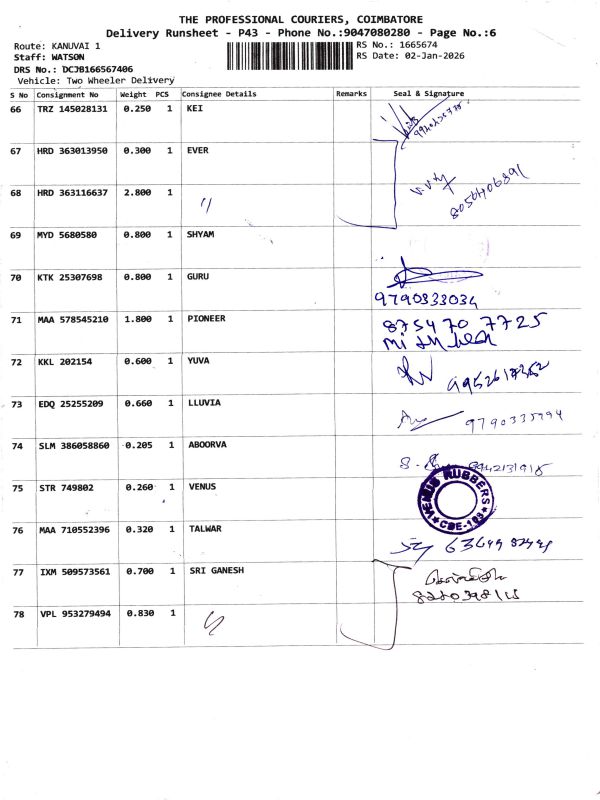 THE PROFESSIONAL COURIERS, COIMBATORE
Delivery Runsheet - P43 - Phone No.:9047080280 - Page No.:6
Route: KANUVAI 1
RS No.: 1665674
Staff: WATSON
RS Date: 02-Jan-2026
DRS No.: DCJB166567406
Vehicle: Two Wheeler Delivery
S No Consignment No Weight PCS Consignee Details Remarks Seal & Signature
66 TRZ 145028131 0.250 1 KEI
67 HRD 363013950 0.300 1 EVER
68 HRD 363116637 2.800 1 〃
8056406891
69 MYD 5680580 0.800 1 SHYAM
70 KTK 25307698 0.800 1 GURU
9790333034
71 MAA 578545210 1.800 1 PIONEER 87547 0 7725
72 KKL 202154 0.600 1 YUVA
73 EDQ 25255209 0.660 1 LLUVIA
74 SLM 386058860 0.205 1 ABOORVA
75 STR 749802 0.260 1 VENUS VENUS RUBBERS ★ CBE-109 ★
76 MAA 710552396 0.320 1 TALWAR
77 IXM 509573561 0.700 1 SRI GANESH
78 VPL 953279494 0.830 1 〃